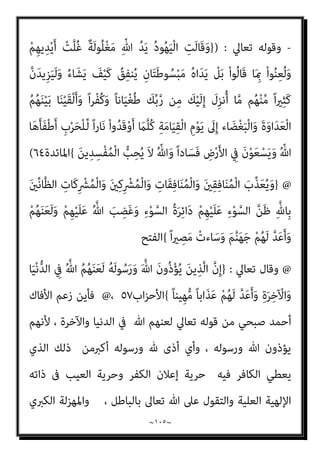 - وقوله تعالي : {(وَقَالَتِ الْيَهُودُ يَدُ اللهِ مَغْلُولَةٌ غُلَّتْ أَيْدِيهِمْ
وَلُعِنُواْ بِمَا قَالُواْ بَلْ يَدَاهُ مَبْسُوطَتَانِ يُنفِقُ كَيْفَ يَشَاءُ وَلَيَزِيدَنَّ
كَثِيراً مِّنْهُم مَّا أُنزِلَ إِلَيْكَ مِن رَّبِّكَ طُغْيَاناً وَكُفْراً وَأَلْقَيْنَا بَيْنَهُمُ
الْعَدَاوَةَ وَالْبَغْضَاء إِلَى يَوْمِ الْقِيَامَةِ كُلَّمَا أَوْقَدُواْ نَاراً لِّلْحَرْبِ أَطْفَأَهَا
اللهُ وَيَسْعَوْنَ فِي الأَرْضِ فَسَاداً وَاللهُ لاَ يُحِبُّ الْمُفْسِدِينَ }المائدة٦٤)
@ {وَيُعَذِّبَ الْمُنَافِقِينَ وَالْمُنَافِقَاتِ وَالْمُشْرِكِينَ وَالْمُشْرِكَاتِ الظَّانِّينَ
بِاللَّهِ ظَنَّ السَّوْءِ عَلَيْهِمْ دَائِرَةُ السَّوْءِ وَغَضِبَ اللَّهُ عَلَيْهِمْ وَلَعَنَهُمْ
وَأَعَدَّ لَهُمْ جَهَنَّمَ وَسَاءتْ مَصِيراً }الفتح
@ وقال تعالي : {إِنَّ الَّذِينَ يُؤْذُونَ اللَّهَ وَرَسُولَهُ لَعَنَهُمُ اللَّهُ فِي الدُّنْيَا
وَالْآخِرَةِ وَأَعَدَّ لَهُمْ عَذَاباً مُّهِيناً }الأحزاب٥٧ @، فأين زعم الأفاك
أحمد صبحي من قوله تعالي لعنهم الله في الدنيا والآخرة ، لأنهم
يؤذون الله ورسوله ، وأي أذى لله ورسوله أكبرمن ذلك الذي
يعطي الكافر فيه حرية إعلان الكفر وحرية العيب في ذاته
الإلهية العلية والتقول على الله تعالى بالباطل ، والمهزلة الكبري
~١٠٥~